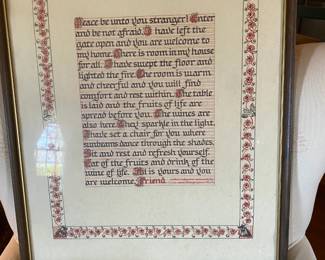 Peace be unto you stranger! Enter
and be not afraid. I have left the
gate open and you are welcome to
my home. There is room in my house
for all. I have swept the floor and
lighted the fire. The room is warm
and cheerful and you will find
comfort and rest within. The table
is laid and the fruits of life are
spread before you. The wines are
also here. They sparkle in the light.
I have set a chair for you where
sunbeams dance through the shades.
Sit and rest and refresh yourself.
Eat of the fruits and drink of the
wine of life. All is yours and you
are welcome, Friend